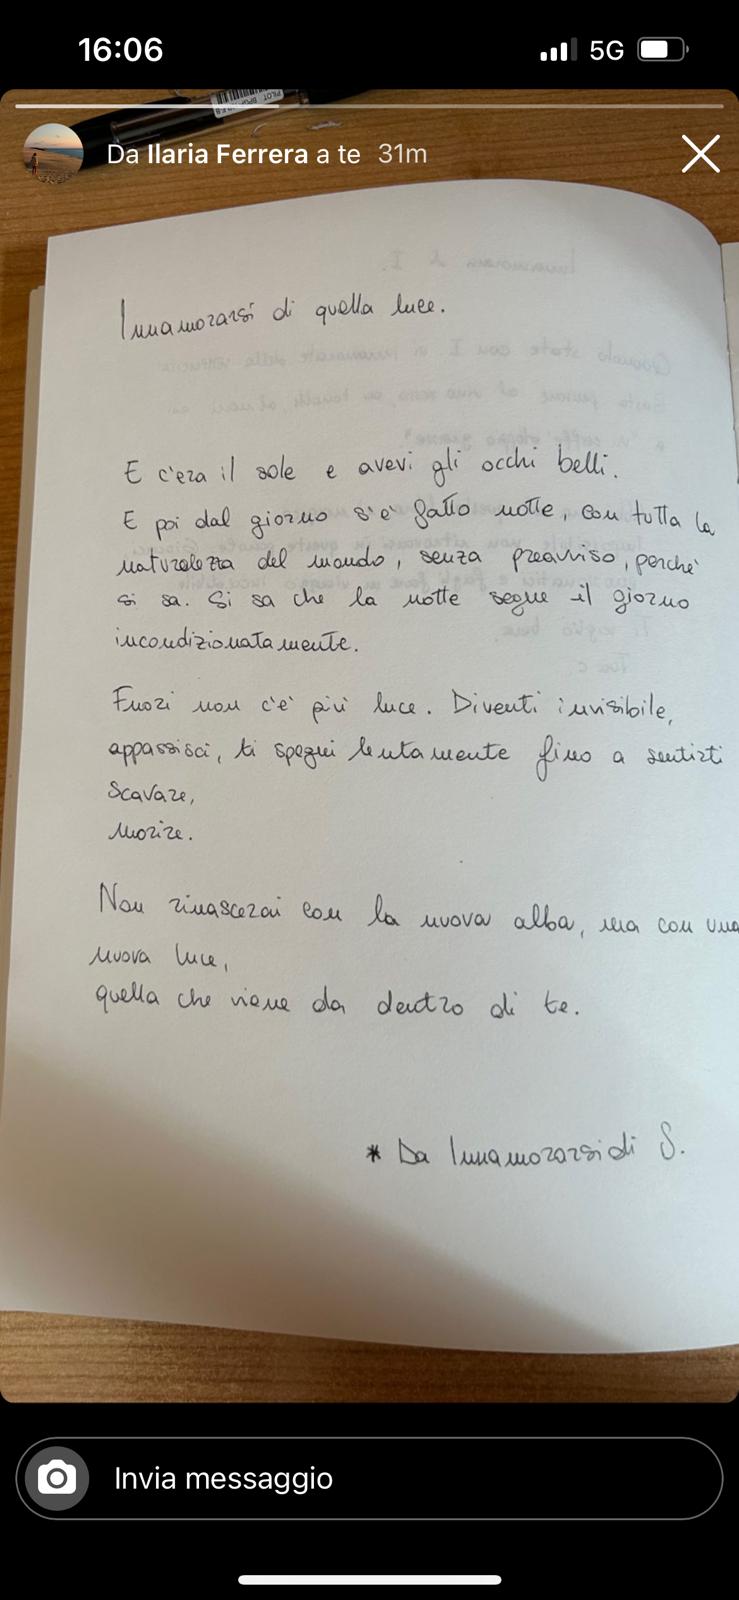 16:06
5G
PILOT
Da Ilaria Ferrera a te 31m
Innamorarsi di quella luce.
E c'era il sole e avevi gli occhi belli.
E poi dal giorno s'è fatto notte, con tutta la
naturalezza del mondo, senza preavviso, perché
si sa. Si sa che la notte segue il giorno
incondizionatamente.
Fuori non c'è più luce. Diventi invisibile,
appassisci, ti spegni lentamente fino a sentirti
scavare,
morire.
Non rinascerai con la nuova alba, ma con una
nuova luce,
quella che viene da dentro di te.
* Da Innamorarsi di S.
Invia messaggio